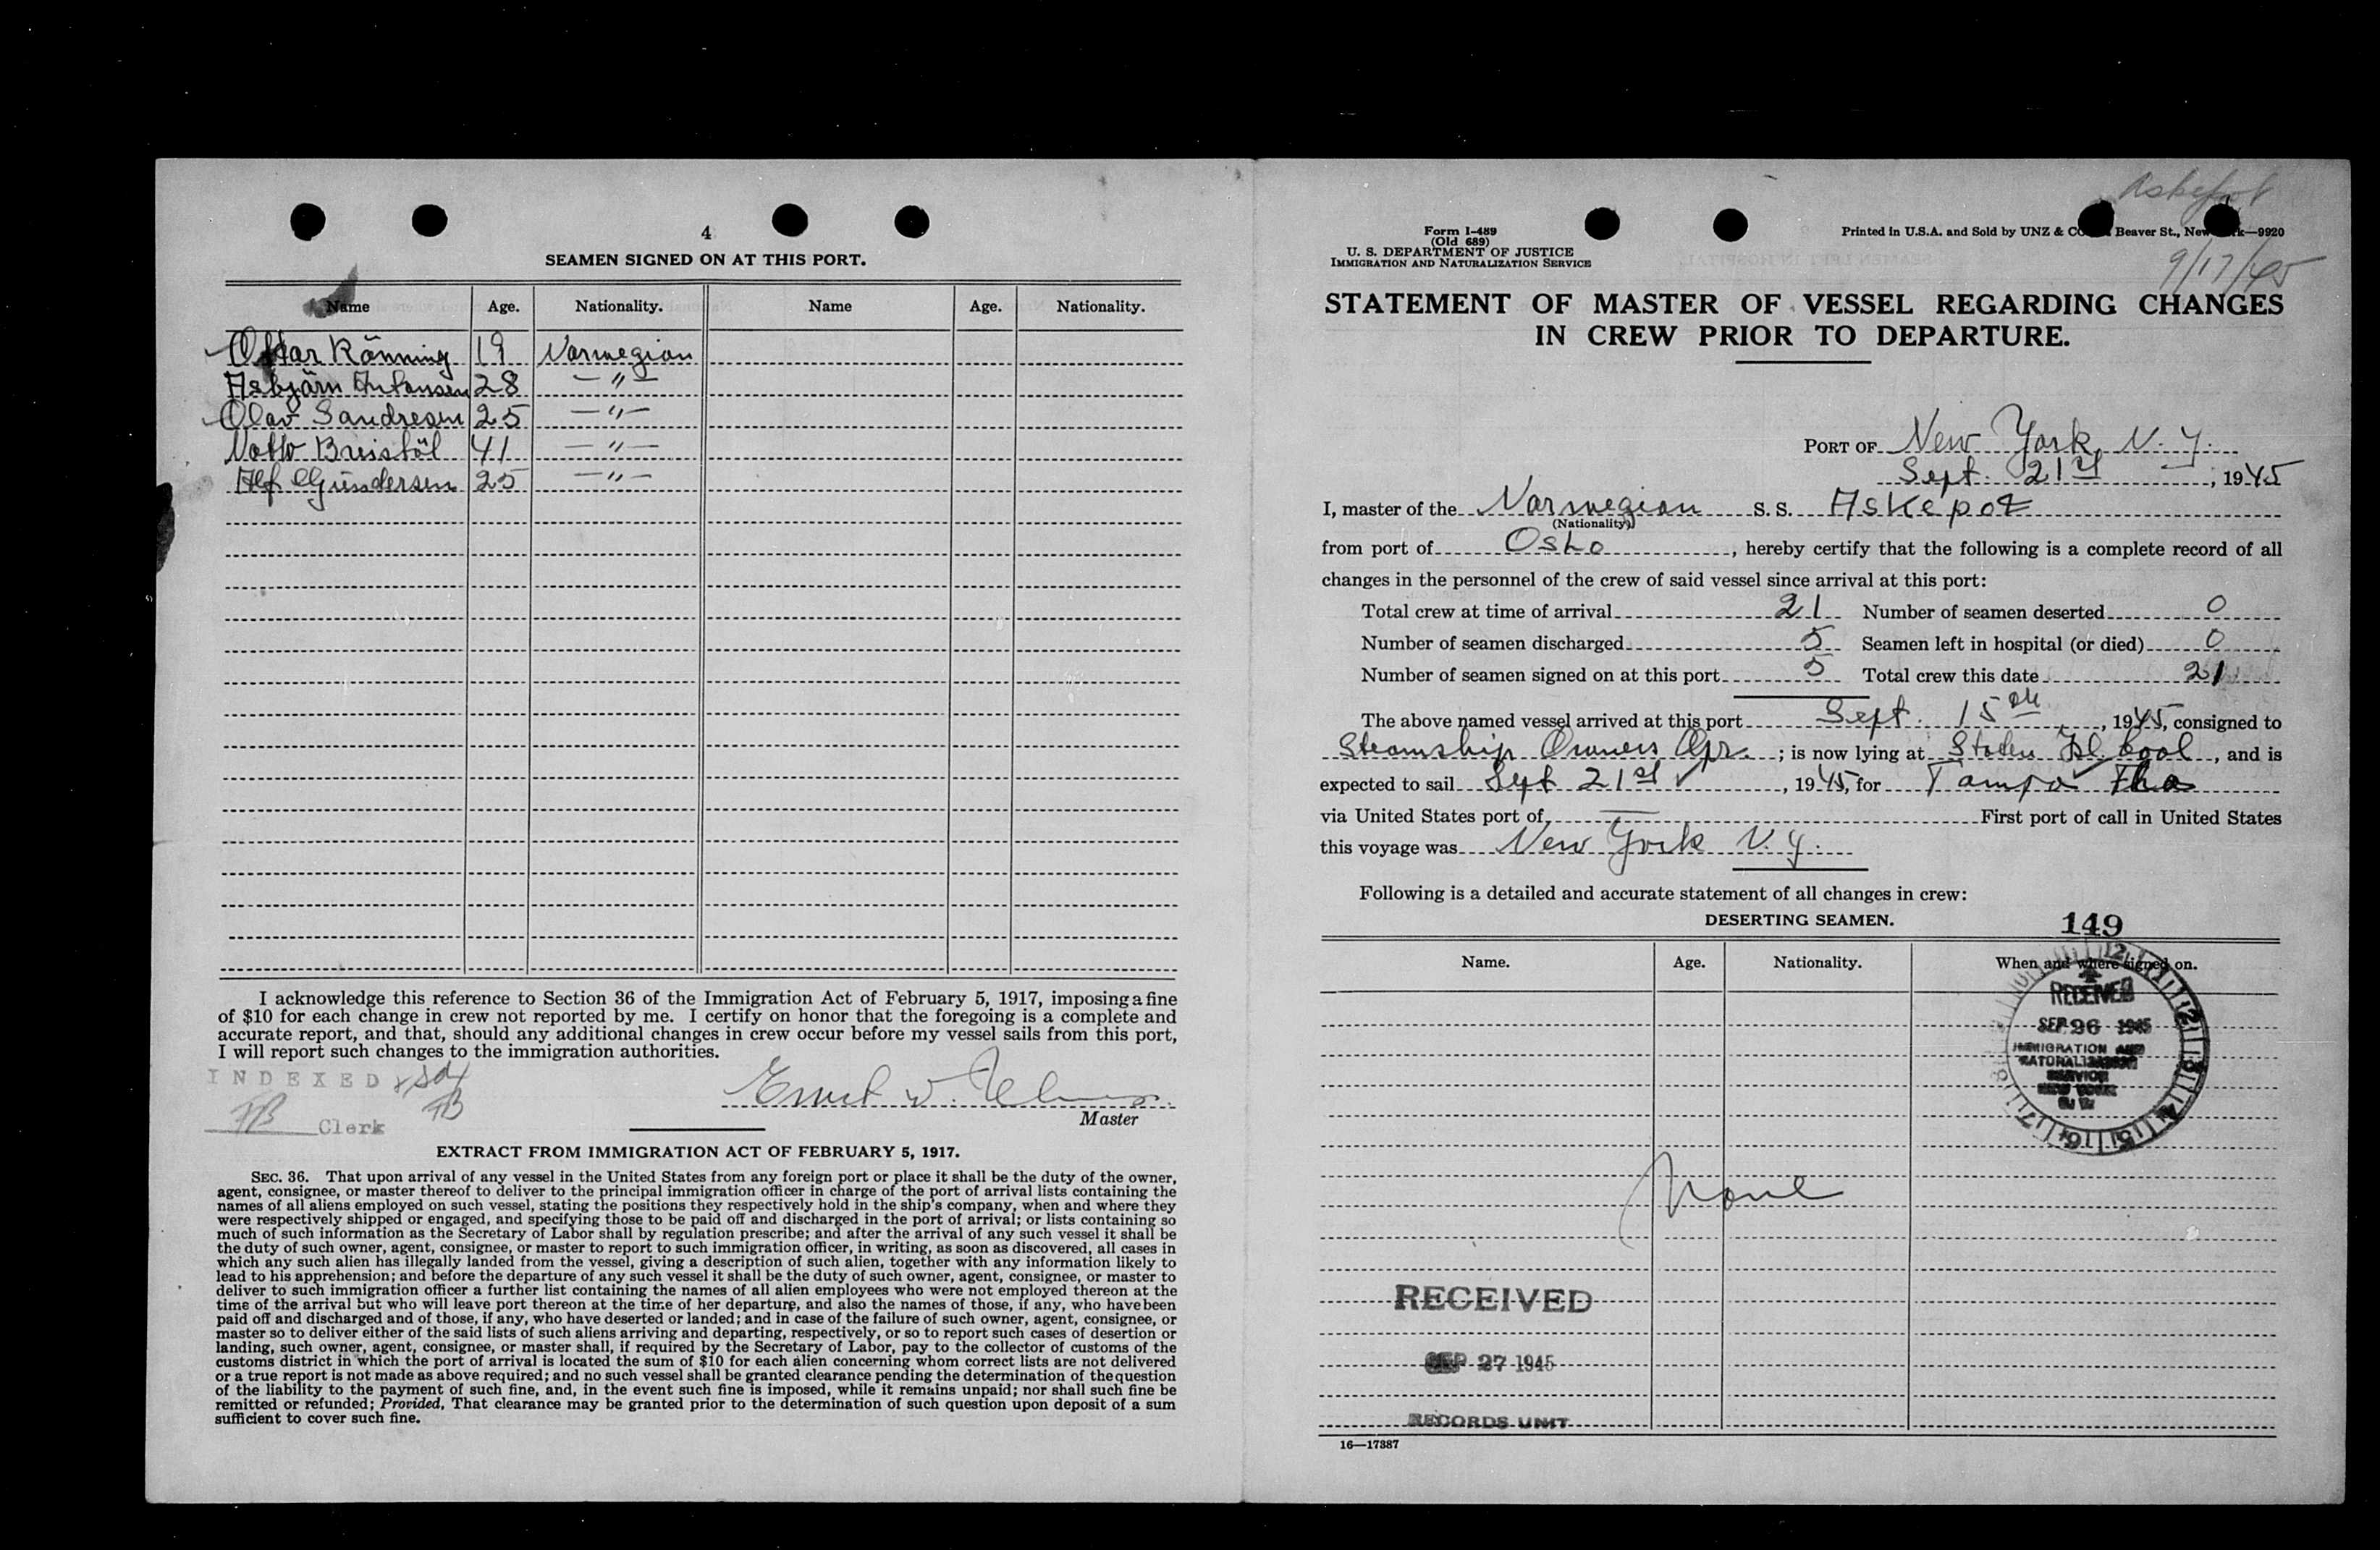 4
SEAMEN SIGNED ON AT THIS PORT.
Name Age. Nationality. Name Age. Nationality.
Rönning 19 Norwegian
Asbjörn Antonsen 28 — " —
Olav Sandresen 25 — " —
Breistöl 41 — " —
Alf Gündersen 25 — " —
I acknowledge this reference to Section 36 of the Immigration Act of February 5, 1917, imposing a fine
of $10 for each change in crew not reported by me. I certify on honor that the foregoing is a complete and
accurate report, and that, should any additional changes in crew occur before my vessel sails from this port,
I will report such changes to the immigration authorities.
INDEXED
FB
FB Clerk
Master
EXTRACT FROM IMMIGRATION ACT OF FEBRUARY 5, 1917.
SEC. 36. That upon arrival of any vessel in the United States from any foreign port or place it shall be the duty of the owner,
agent, consignee, or master thereof to deliver to the principal immigration officer in charge of the port of arrival lists containing the
names of all aliens employed on such vessel, stating the positions they respectively hold in the ship's company, when and where they
were respectively shipped or engaged, and specifying those to be paid off and discharged in the port of arrival; or lists containing so
much of such information as the Secretary of Labor shall by regulation prescribe; and after the arrival of any such vessel it shall be
the duty of such owner, agent, consignee, or master to report to such immigration officer, in writing, as soon as discovered, all cases in
which any such alien has illegally landed from the vessel, giving a description of such alien, together with any information likely to
lead to his apprehension; and before the departure of any such vessel it shall be the duty of such owner, agent, consignee, or master to
deliver to such immigration officer a further list containing the names of all alien employees who were not employed thereon at the
time of the arrival but who will leave port thereon at the time of her departure, and also the names of those, if any, who have been
paid off and discharged and of those, if any, who have deserted or landed; and in case of the failure of such owner, agent, consignee, or
master so to deliver either of the said lists of such aliens arriving and departing, respectively, or so to report such cases of desertion or
landing, such owner, agent, consignee, or master shall, if required by the Secretary of Labor, pay to the collector of customs of the
customs district in which the port of arrival is located the sum of $10 for each alien concerning whom correct lists are not delivered
or a true report is not made as above required; and no such vessel shall be granted clearance pending the determination of the question
of the liability to the payment of such fine, and, in the event such fine is imposed, while it remains unpaid; nor shall such fine be
remitted or refunded; Provided, That clearance may be granted prior to the determination of such question upon deposit of a sum
sufficient to cover such fine.
Askepot
9/17/45
Form I-489
(Old 689)
U. S. DEPARTMENT OF JUSTICE
IMMIGRATION AND NATURALIZATION SERVICE
Printed in U.S.A. and Sold by UNZ & Beaver St., —9920
STATEMENT OF MASTER OF VESSEL REGARDING CHANGES
IN CREW PRIOR TO DEPARTURE.
PORT OF New York, N. Y.
Sept. 21st, 1945
I, master of the Norwegian S. S. Askepot
(Nationality)
from port of Oslo, hereby certify that the following is a complete record of all
changes in the personnel of the crew of said vessel since arrival at this port:
Total crew at time of arrival 21 Number of seamen deserted 0
Number of seamen discharged 5 Seamen left in hospital (or died) 0
Number of seamen signed on at this port 5 Total crew this date 21
The above named vessel arrived at this port Sept. 15th, 1945, consigned to
Steamship Owners ; is now lying at Staten Isl. , and is
expected to sail Sept 21st, 1945, for Tampa Fla
via United States port of — First port of call in United States
this voyage was New York N. Y.
Following is a detailed and accurate statement of all changes in crew:
DESERTING SEAMEN.
149
Name. Age. Nationality. When and where signed on.
RECEIVED
SEP 26 1945
IMMIGRATION AND
NATURALIZATION
SERVICE
NEW YORK
N. Y.
None
RECEIVED
SEP 27 1945
RECORDS UNIT
16—17387